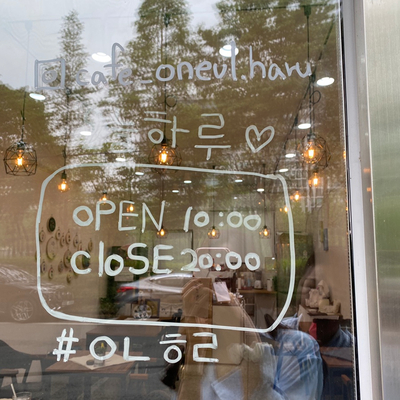 cafe_oneul.haru
하루
OPEN 10:00
CloSE 20:00
#ㅇㄴㅎㄹ